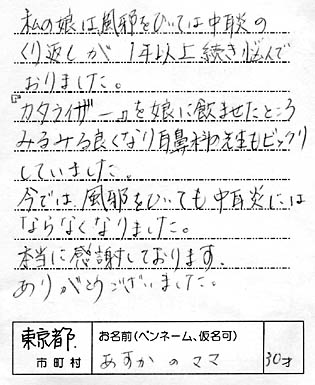 私の娘は風邪をひいては中耳炎の
くり返しが1年以上続き悩んで
おりました。
『カタライザー』を娘に飲ませたところ
みるみる良くなり耳鼻科の先生もビックリ
していました。
今では風邪をひいても中耳炎には
ならなくなりました。
本当に感謝しております.
ありがとうございました。
東京都. お名前(ペンネーム、仮名可)
市町村 あすかのママ 30才